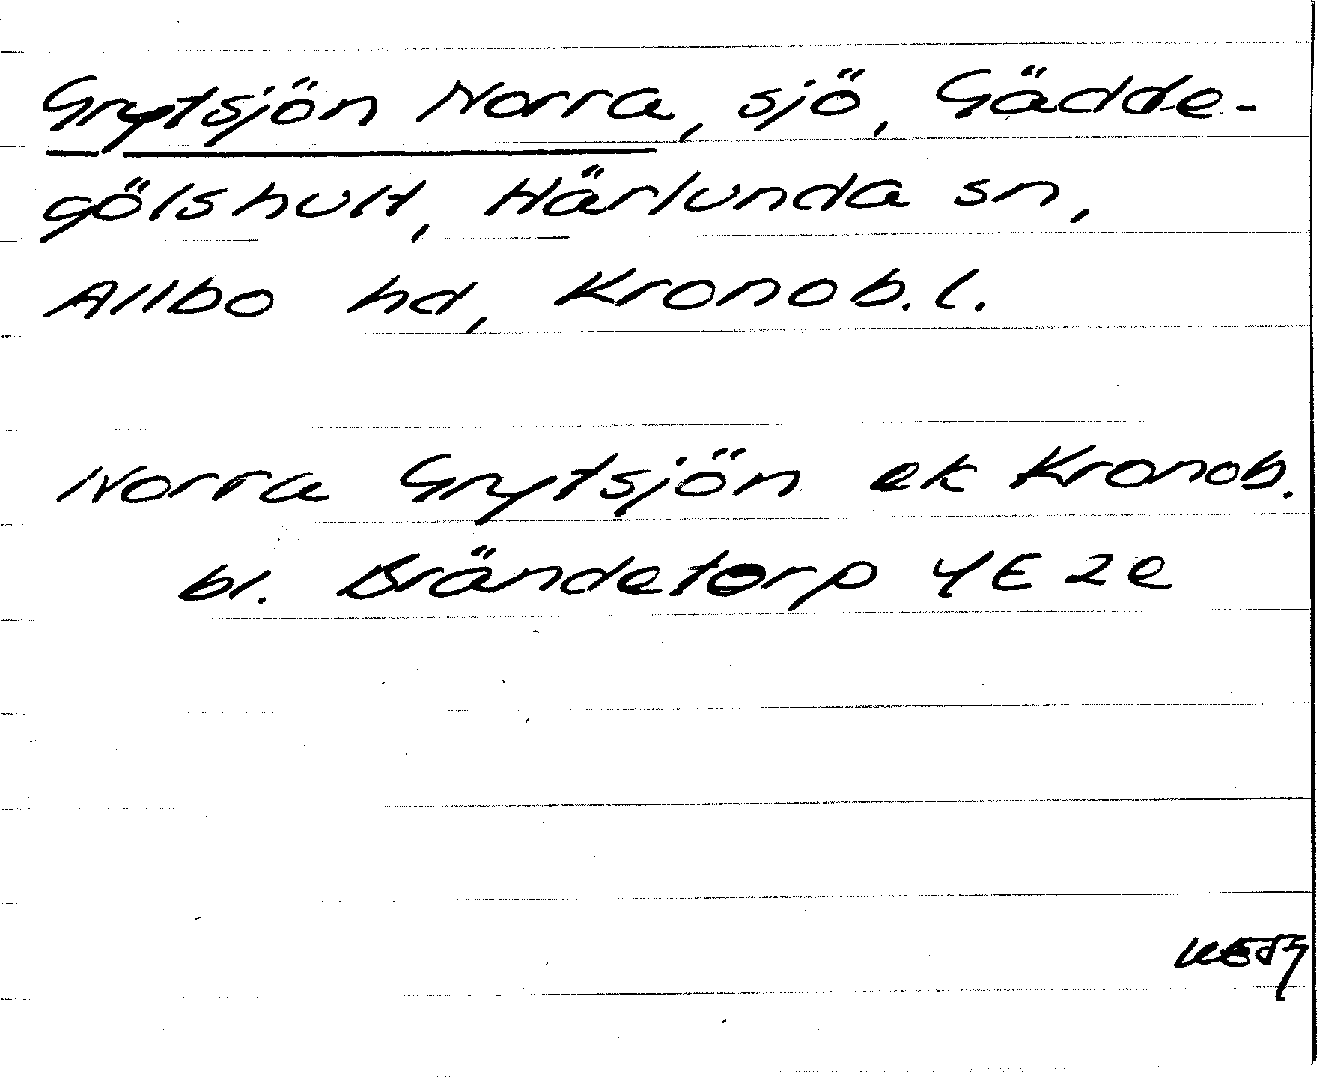 Grytsjön Norra, sjö, Gädde-
gölshult, Härlunda sn,
Allbo hd, Kronob. l.
Norra Grytsjön ek Kronob.
bl. Brändetorp 4E 2e